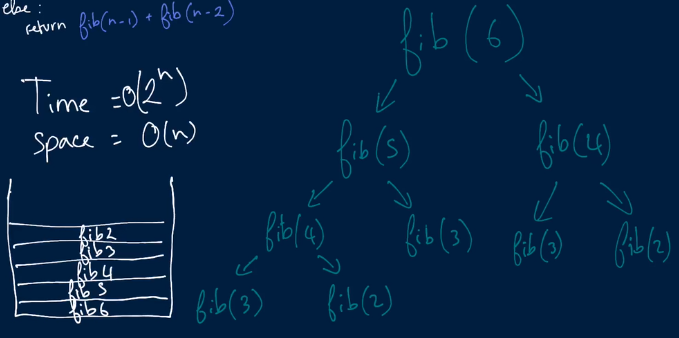 else:
return fib(n-1) + fib(n-2)
Time = O(2^n)
Space = O(n)
fib2
fib3
fib4
fib5
fib6
fib(6)
fib(5) fib(4)
fib(4) fib(3) fib(3) fib(2)
fib(3) fib(2)